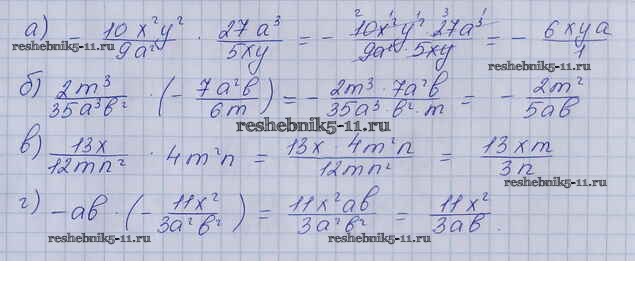 а) - 10x²y²/9a² · 27a³/5xy = - 10x²y² · 27a³/9a² · 5xy = - 6xya/1
reshebnik5-11.ru reshebnik5-11.ru
б) 2m³/35a³b² · (- 7a²b/6m) = - 2m³ · 7a²b/35a³ · b² · m = - 2m²/5ab
reshebnik5-11.ru
в) 13x/12mn² · 4m²n = 13x · 4m²n/12mn² = 13xm/3n
reshebnik5-11.ru
г) -ab · (- 11x²/3a²b²) = 11x²ab/3a²b² = 11x²/3ab.
reshebnik5-11.ru reshebnik5-11.ru